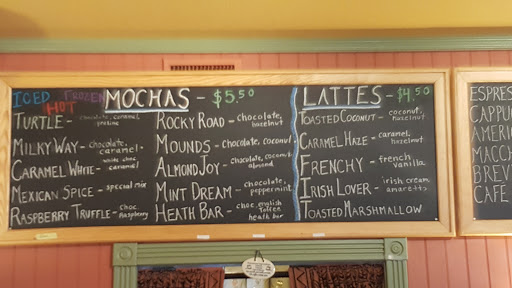 ICED FROZEN
HOT
MOCHAS - $5.50
TURTLE - chocolate, caramel, praline
MILKY WAY - chocolate, caramel
CARAMEL WHITE - white choc. caramel
MEXICAN SPICE - special mix
RASPBERRY TRUFFLE - choc. Raspberry
ROCKY ROAD - chocolate, hazelnut
MOUNDS - chocolate, coconut
ALMOND JOY - chocolate, coconut almond
MINT DREAM - chocolate, peppermint
HEATH BAR - choc, english toffee heath bar
LATTES - $4.50
TOASTED COCONUT - coconut, hazelnut
CARAMEL HAZE - caramel, hazelnut
FRENCHY - french vanilla
IRISH LOVER - irish cream amaretto
TOASTED MARSHMALLOW
ESPRES
CAPPUC
AMERIC
MACCH
BREV
CAFE